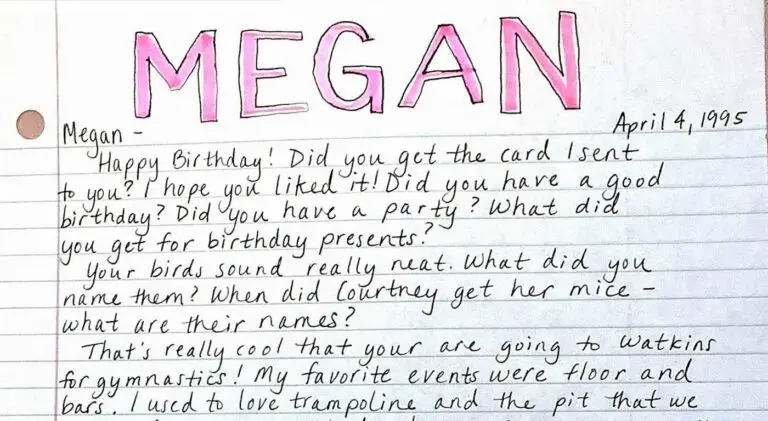 MEGAN
April 4, 1995
Megan -
Happy Birthday! Did you get the card I sent
to you? I hope you liked it! Did you have a good
birthday? Did you have a party? What did
you get for birthday presents?
Your birds sound really neat. What did you
name them? When did Courtney get her mice -
what are their names?
That's really cool that your are going to Watkins
for gymnastics! My favorite events were floor and
bars. I used to love trampoline and the pit that we